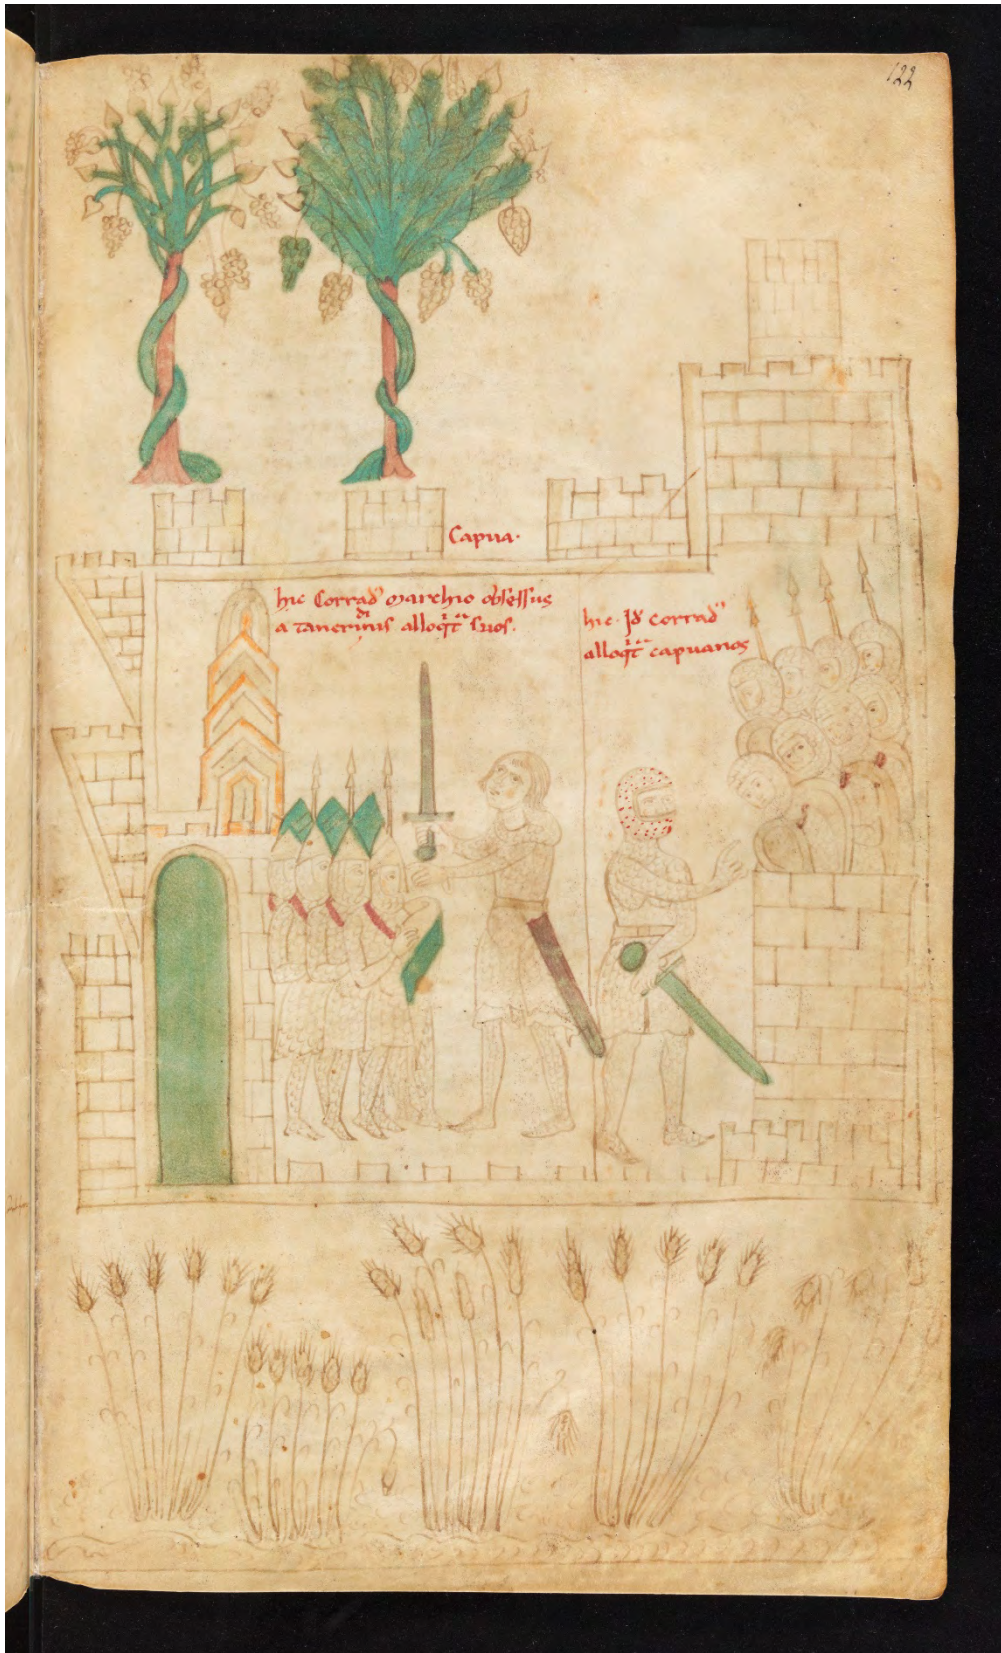 122
Capua.
hic Corrad' marchio obsessus
a tancridinis alloqit' suos.
hic. Id' corrad'
alloqit' capuanos